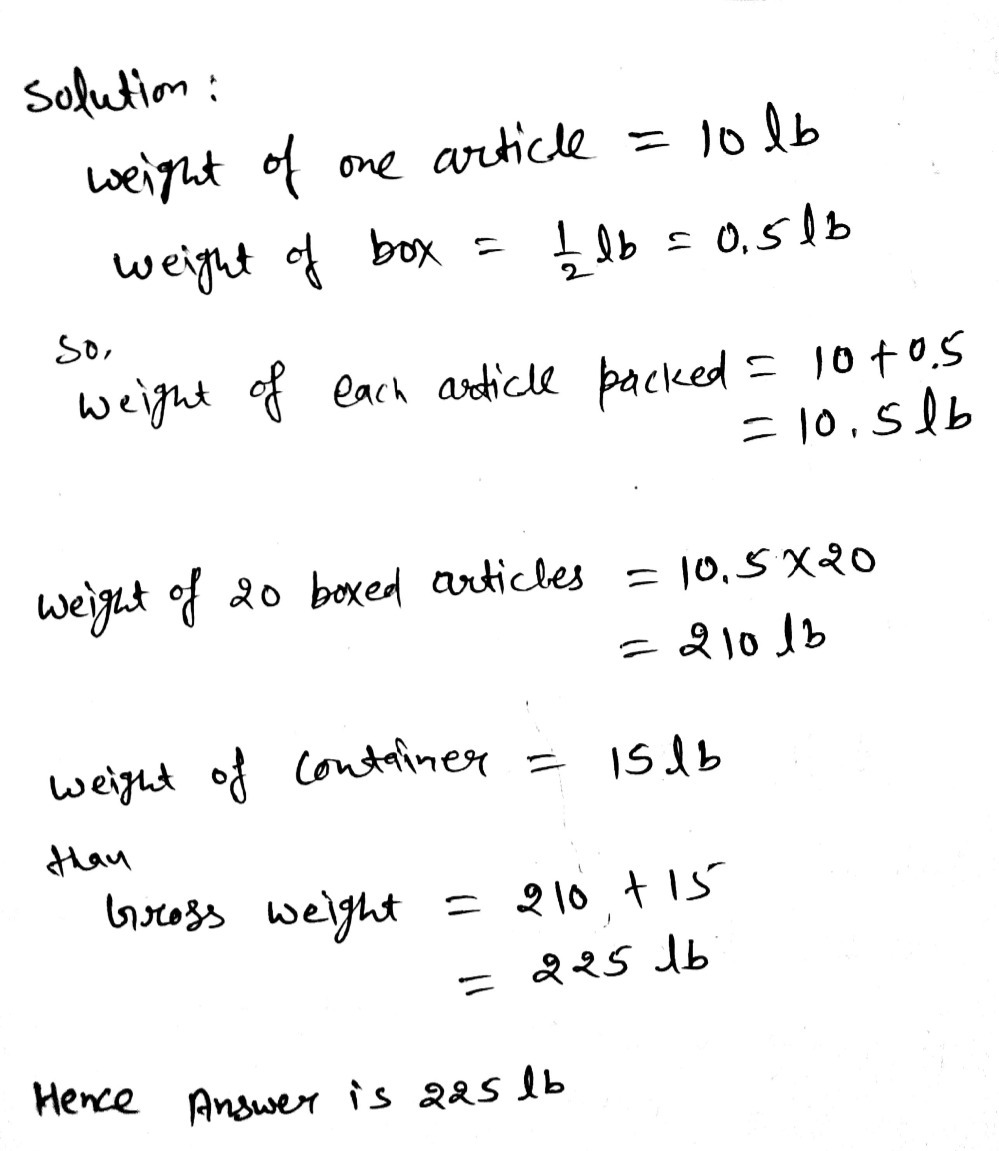 Solution:
weight of one article = 10 lb
weight of box = 1/2 lb = 0.5 lb
So,
weight of each article packed = 10 + 0.5
= 10.5 lb
weight of 20 boxed articles = 10.5 X 20
= 210 lb
weight of Container = 15 lb
than
Gross weight = 210 + 15
= 225 lb
Hence Answer is 225 lb